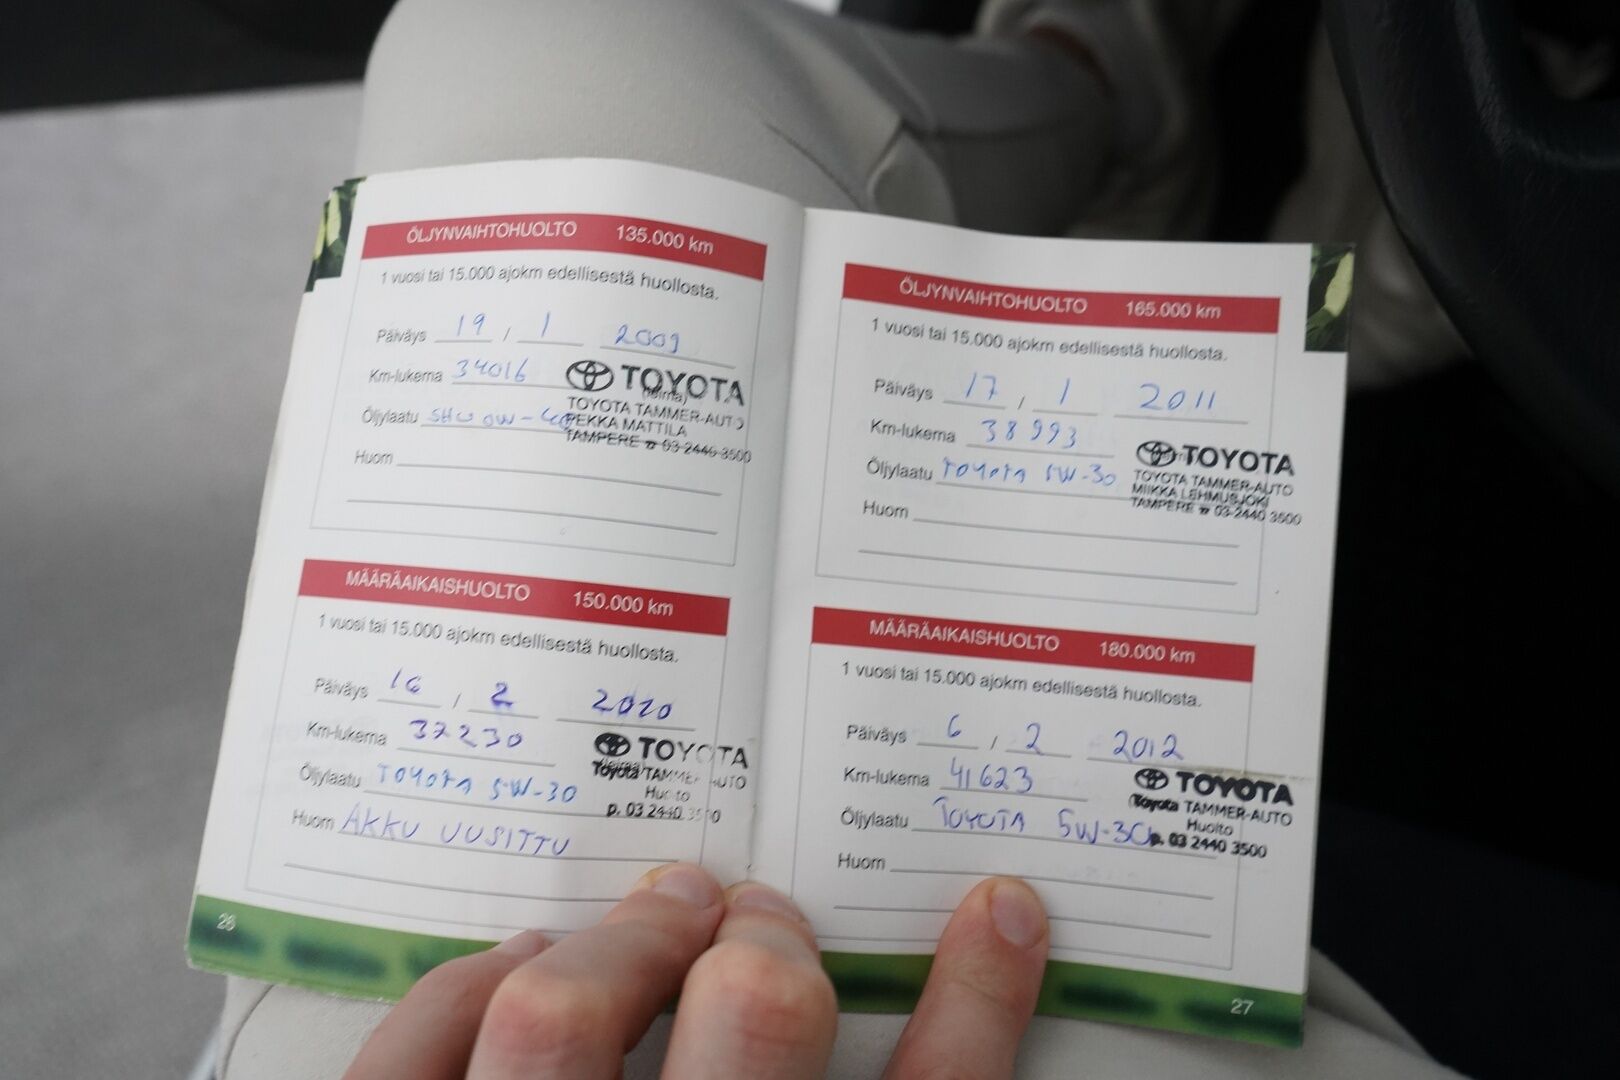 ÖLJYNVAIHTOHUOLTO 135.000 km
1 vuosi tai 15.000 ajokm edellisestä huollosta.
Päiväys 19 / 1 2009
Km-lukema 34016
Öljylaatu 0W-40
Huom
TOYOTA
TOYOTA TAMMER-AUTO
PEKKA MATTILA
TAMPERE ☎ 03-2440 3500
MÄÄRÄAIKAISHUOLTO 150.000 km
1 vuosi tai 15.000 ajokm edellisestä huollosta.
Päiväys 16 / 2 2010
Km-lukema 37230
Öljylaatu TOYOTA 5W-30
Huom AKKU UUSITTU
TOYOTA
Toyota TAMMER-AUTO
Huolto
p. 03 2440 3500
26
ÖLJYNVAIHTOHUOLTO 165.000 km
1 vuosi tai 15.000 ajokm edellisestä huollosta.
Päiväys 17 / 1 2011
Km-lukema 38993
Öljylaatu TOYOTA 5W-30
Huom
TOYOTA
TOYOTA TAMMER-AUTO
MIIKKA LEHMUSJOKI
TAMPERE ☎ 03-2440 3500
MÄÄRÄAIKAISHUOLTO 180.000 km
1 vuosi tai 15.000 ajokm edellisestä huollosta.
Päiväys 6 / 2 2012
Km-lukema 41623
Öljylaatu TOYOTA 5W-30
Huom
TOYOTA
Toyota TAMMER-AUTO
Huolto
p. 03 2440 3500
27